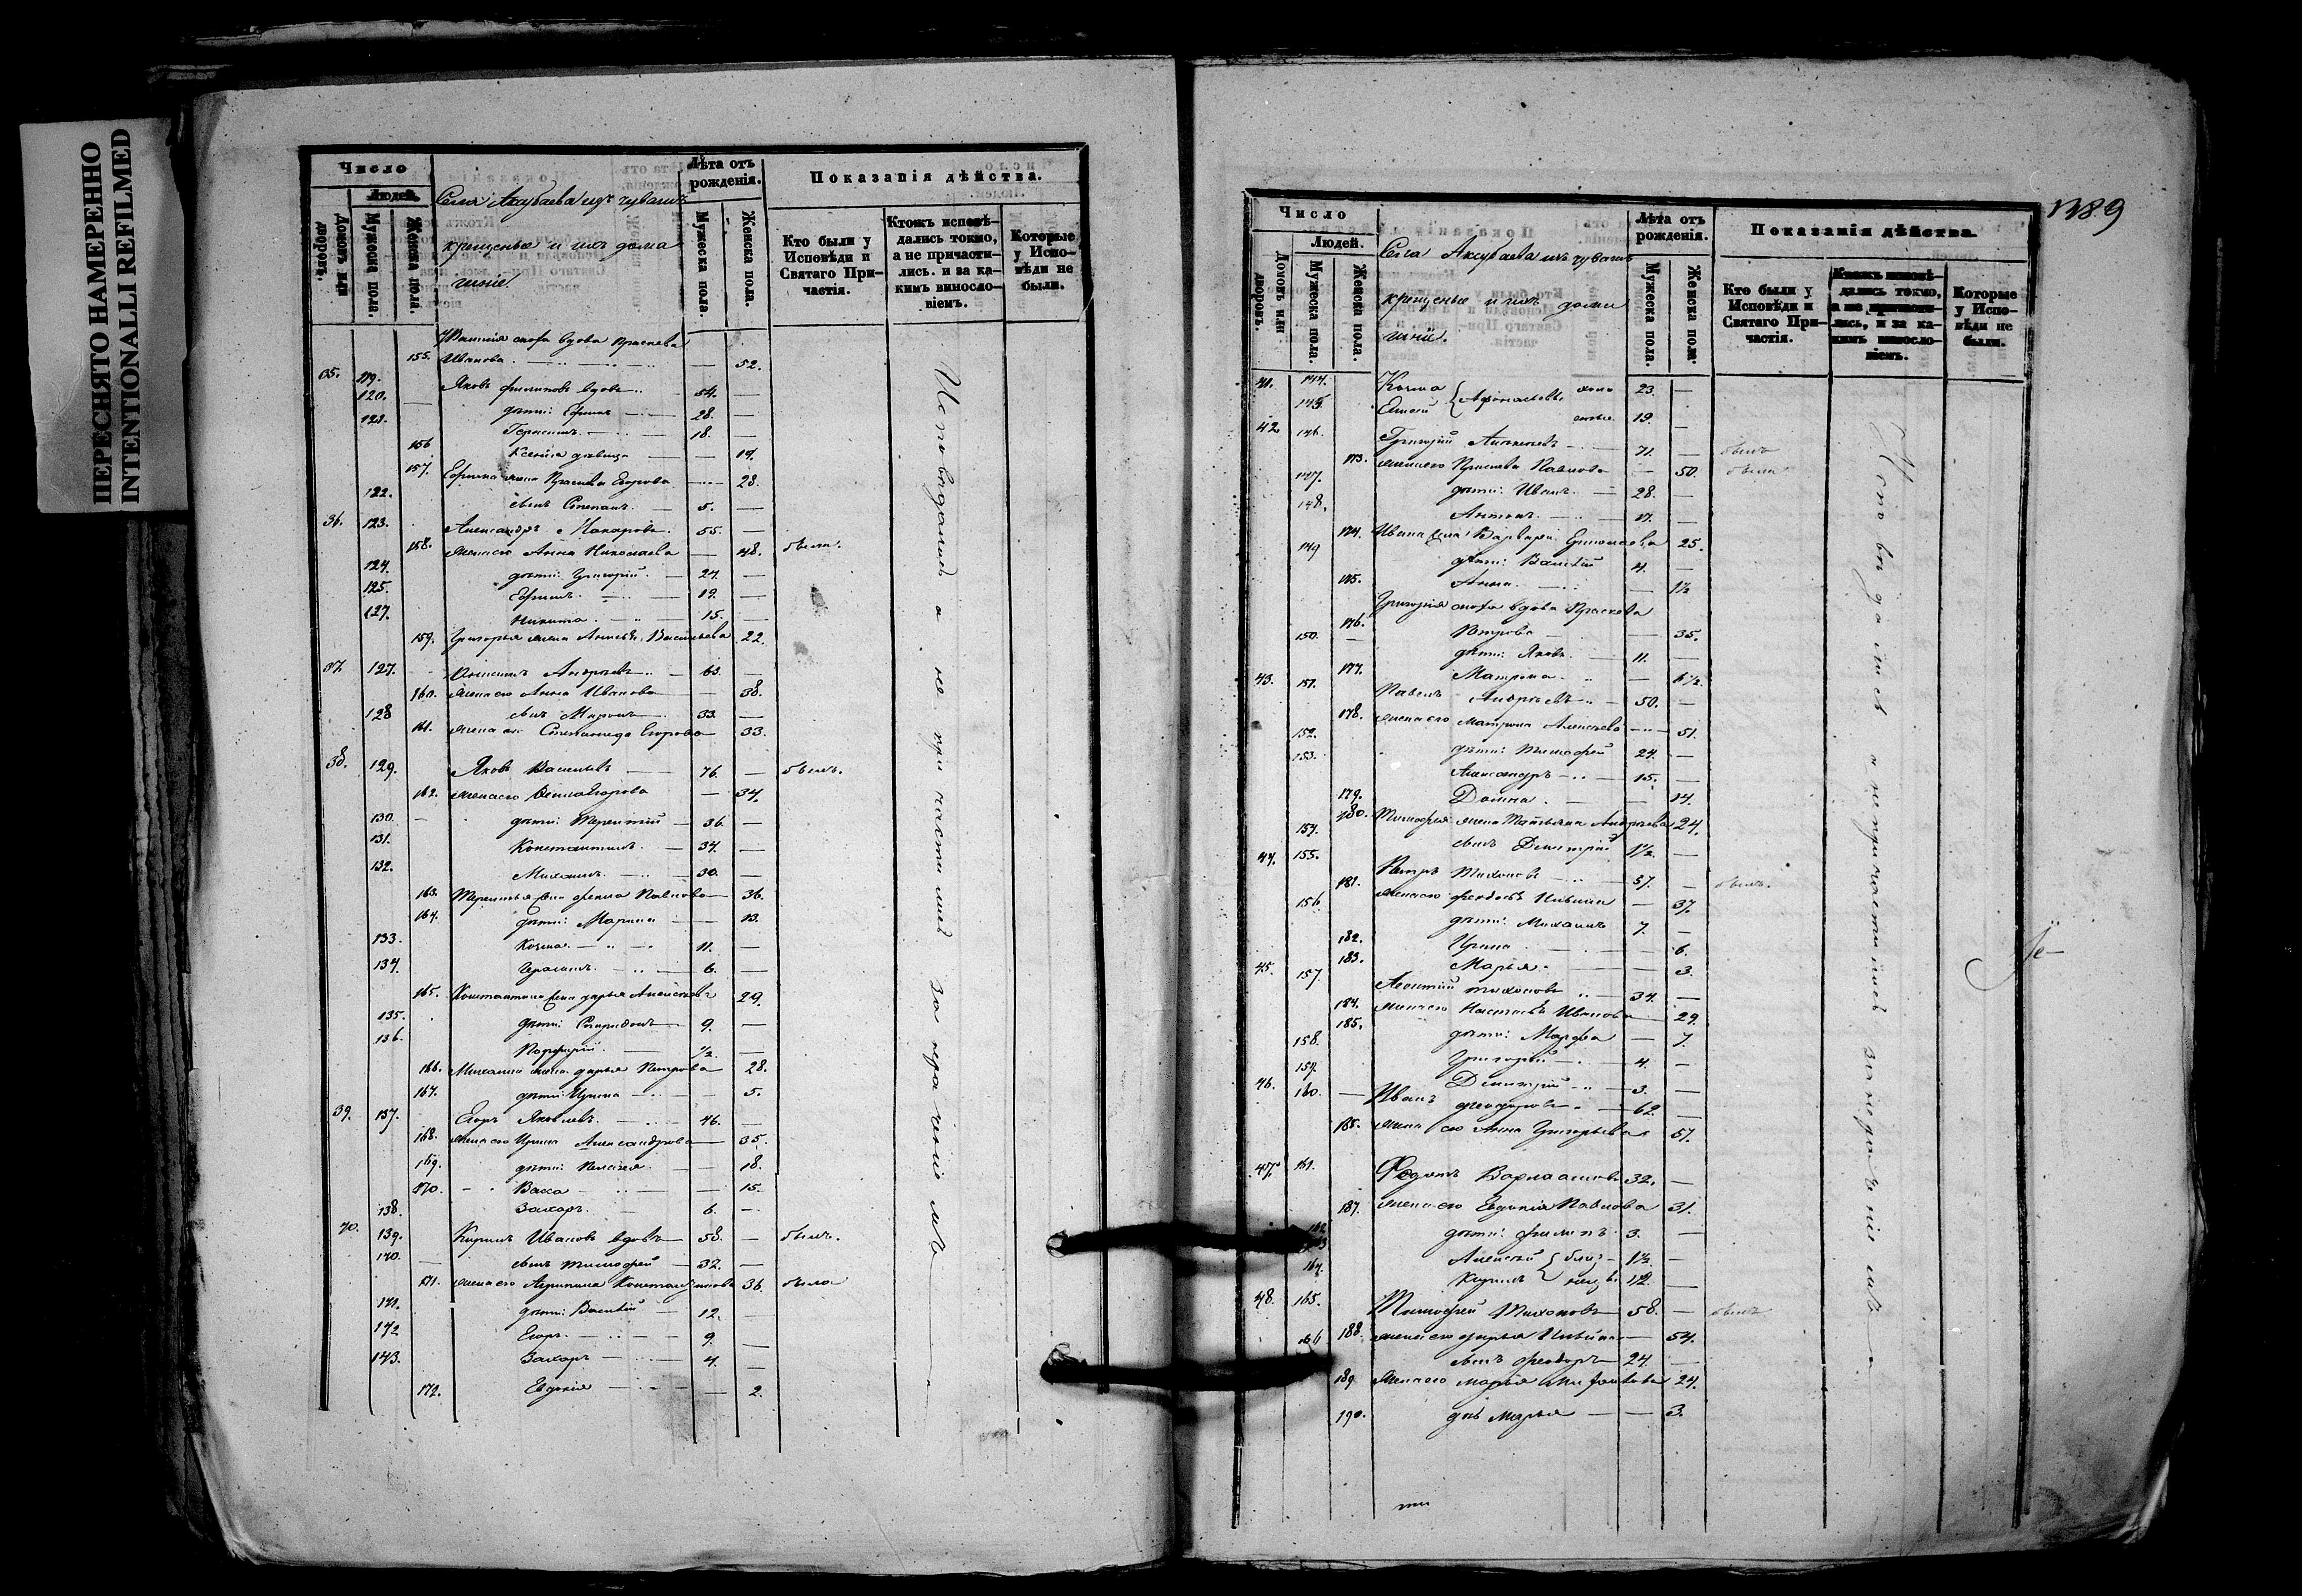 ПЕРЕСНЯТО НАМЕРЕННО
INTENTIONALLI REFILMED
Число
Людей.
Домовъ или дворовъ.
Мужеска пола.
Женска пола.
Села Аксубаева изъ чувашъ
крещеные и ихъ дома
шніе.
Лѣта отъ рожденія.
Мужеска пола.
Женска пола.
Показанія дѣйства.
Кто были у Исповѣди и Святаго При-частія.
Ктожъ исповѣ-дались токмо, а не причасти-лись. и за ка-кимъ винословіемъ.
Которые у Испо-вѣди не были.
сноха вдова Праскева
155. Иванова — 52.
35. 119. Яковъ Филиповъ вдовъ 54. —
120. дѣти: Ефримъ — 28. —
Герасимъ. — 18. —
156 Ксенія дѣвица — 19.
157. Ефрима жена Праскева Егорова — 23.
122. сынъ Степанъ. — 5. —
36. 123. Александръ Макаровъ. 55. —
158. жена его Анна Николаева — 48. была.
124. дѣти: Григорій. — 24. —
125. Ефримъ. — 19. —
127. Никита. — 15. —
159. Григорья жена Васильева 22.
37. 127. Андреевъ — 63. —
160. жена его Анна Иванова — 38.
128 сынъ Миронъ — 33. —
161. жена его Степанида Егорова 33.
38. 129. Яковъ Васильевъ — 76. — былъ.
162. жена его Егорова — 34.
130. — дѣти: Терентій — 36. —
131. Константинъ. — 34. —
132. Михаилъ. — 30. —
163. Терентья жена Фекла Павлова — 36.
164. дѣти: Марина — 13.
133. Козма. — 11. —
134. Герасимъ. — 6. —
165. Константина жена Дарья Алексѣева 29.
135. дѣти: Спиридонъ — 9. —
136. Порфирій. — 1/2. —
166. Михаила жена Дарья Петрова — 28.
167. дѣти: Ирина — 5.
39. 137. Егоръ Яковлевъ. — 46. —
168. жена его Ирина Александрова — 35.
169. дѣти: Пелагея. — 18.
170. Васса — 15.
138. Захаръ. — 6. —
40. 139. Кирилъ Ивановъ вдовъ — 58. — былъ.
140. — сынъ Тимофей — 32. —
171. жена его Агрипина Константинова 36. была
141. дѣти: Василій — 12. —
142 Егоръ. — 9. —
143. Захаръ — 4. —
172. Евдокія — 2.
Исповѣдалися а не причастились за нерачениемъ
1389
Число
Людей.
Домовъ или дворовъ.
Мужеска пола.
Женска пола.
Села Аксубаева изъ чувашъ
крещеные и ихъ дома
шніе.
Лѣта отъ рожденія.
Мужеска пола.
Женска пола.
Показанія дѣйства.
Кто были у Исповѣди и Святаго При-частія.
Ктожъ исповѣ-дались токмо, а не причасти-лись, и за ка-кимъ винословіемъ.
Которые у Испо-вѣди не были.
41. 144. Козма 23. —
145. Афонасьевы холостые. 19. —
42. 146. Григорій — 71. — былъ
173. жена его Праскева Павлова — 50. была
147. дѣти: Иванъ. — 28. —
148. Антонъ. — 17. —
174. Ивана жена Варвара 25.
149 дѣти: Василій 4. —
175. Анна. — 1 1/2
Григорія сноха вдова Праскева
176. Петрова — 35.
150. дѣти: Яковъ. — 11. —
177. Матрона. — 6 1/2.
43. 151. Павелъ Андреевъ — 50. —
178. жена его Матрона Алексѣева — 51.
152. дѣти: Тимофей 24. —
153. Александръ — 15. —
179. Домна. — 14.
180. Тимофея жена Татьяна Андреева 24.
154. сынъ Дмитрій 1 1/2. —
44. 155. Петръ Тихоновъ — 37. — былъ.
181. жена его — 37.
156 дѣти: Михаилъ 7. —
182. Ирина — 6.
183. Марья. — 3.
45. 157. Леонтій Тихоновъ — 34. —
184. жена его Настасья Иванова — 29.
185. дѣти: Марфа — 7.
158. Григорій — 4. —
159. Дмитрій — 3. —
46. 160. — Иванъ Феодоровъ — 62. —
186. жена его Анна Григорьева 57.
47. 161. Федотъ Варлаамовъ 32. —
187. жена его Евдокія Павлова 31.
162 дѣти: Филипъ 3. —
163 Алексѣй близ — 1 1/2. —
164. Кирилъ нецы 1/2. —
48. 165. Тимофей Тихоновъ — 58. — былъ
188. жена его Дарья — 54.
166 сынъ Феодоръ — 24. —
189. жена его Марья 24.
190. дочь Марья — 3.
Исповѣдались а не причастились за нерадѣніемъ